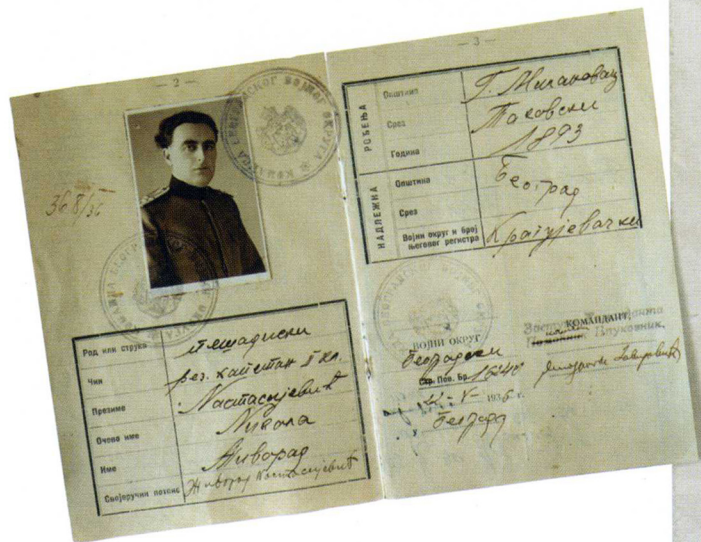 — 2 —
368/36
Род или струка пешадиски
Чин рез. капетан II кл.
Презиме Настасијевић
Очево име Никола
Име Живорад
Својеручни потпис Живорад Настасијевић
— 3 —
РОЂЕЊА
Општина Г. Милановац
Срез Таковски
Година 1893
НАДЛЕЖНА
Општина Београд
Срез
Војни округ и број његовог регистра Крагујевачки
ВОЈНИ ОКРУГ
Београдски
Стр. Пов. Бр.
22-V- 1936 г.
Београд
КОМАНДАНТ,
Пуковник,